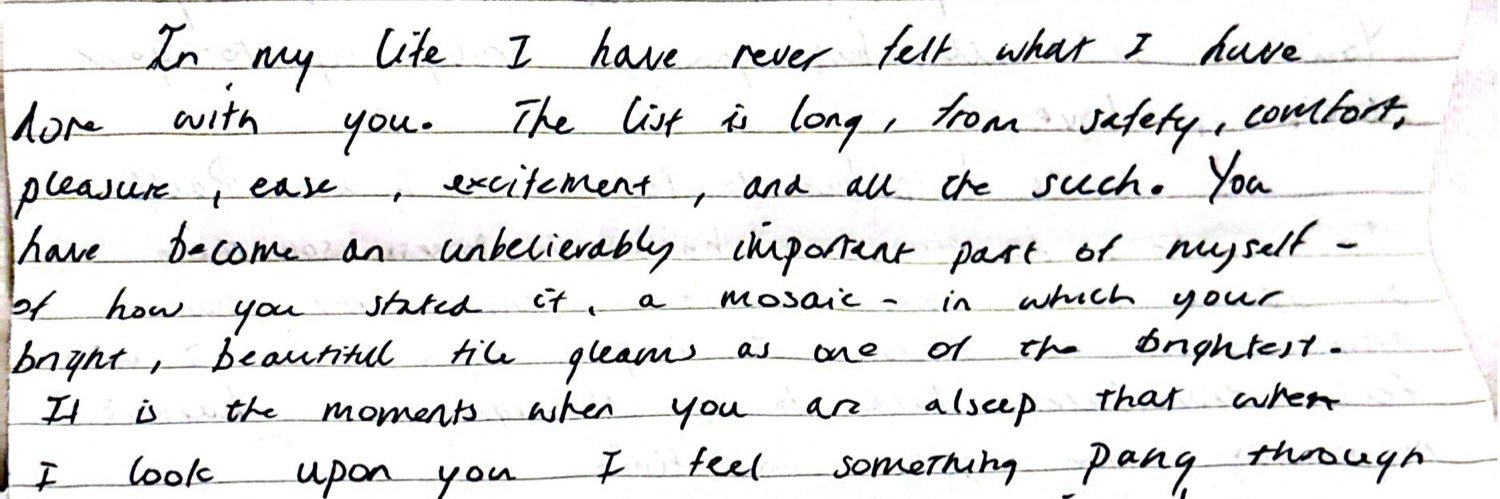 In my life I have never felt what I have
done with you. The list is long, from safety, comfort,
pleasure, ease, excitement, and all the such. You
have become an unbelievably important part of myself -
of how you stated it, a mosaic - in which your
bright, beautiful tile gleams as one of the brightest.
It is the moments when you are alseep that when
I look upon you I feel something pang through